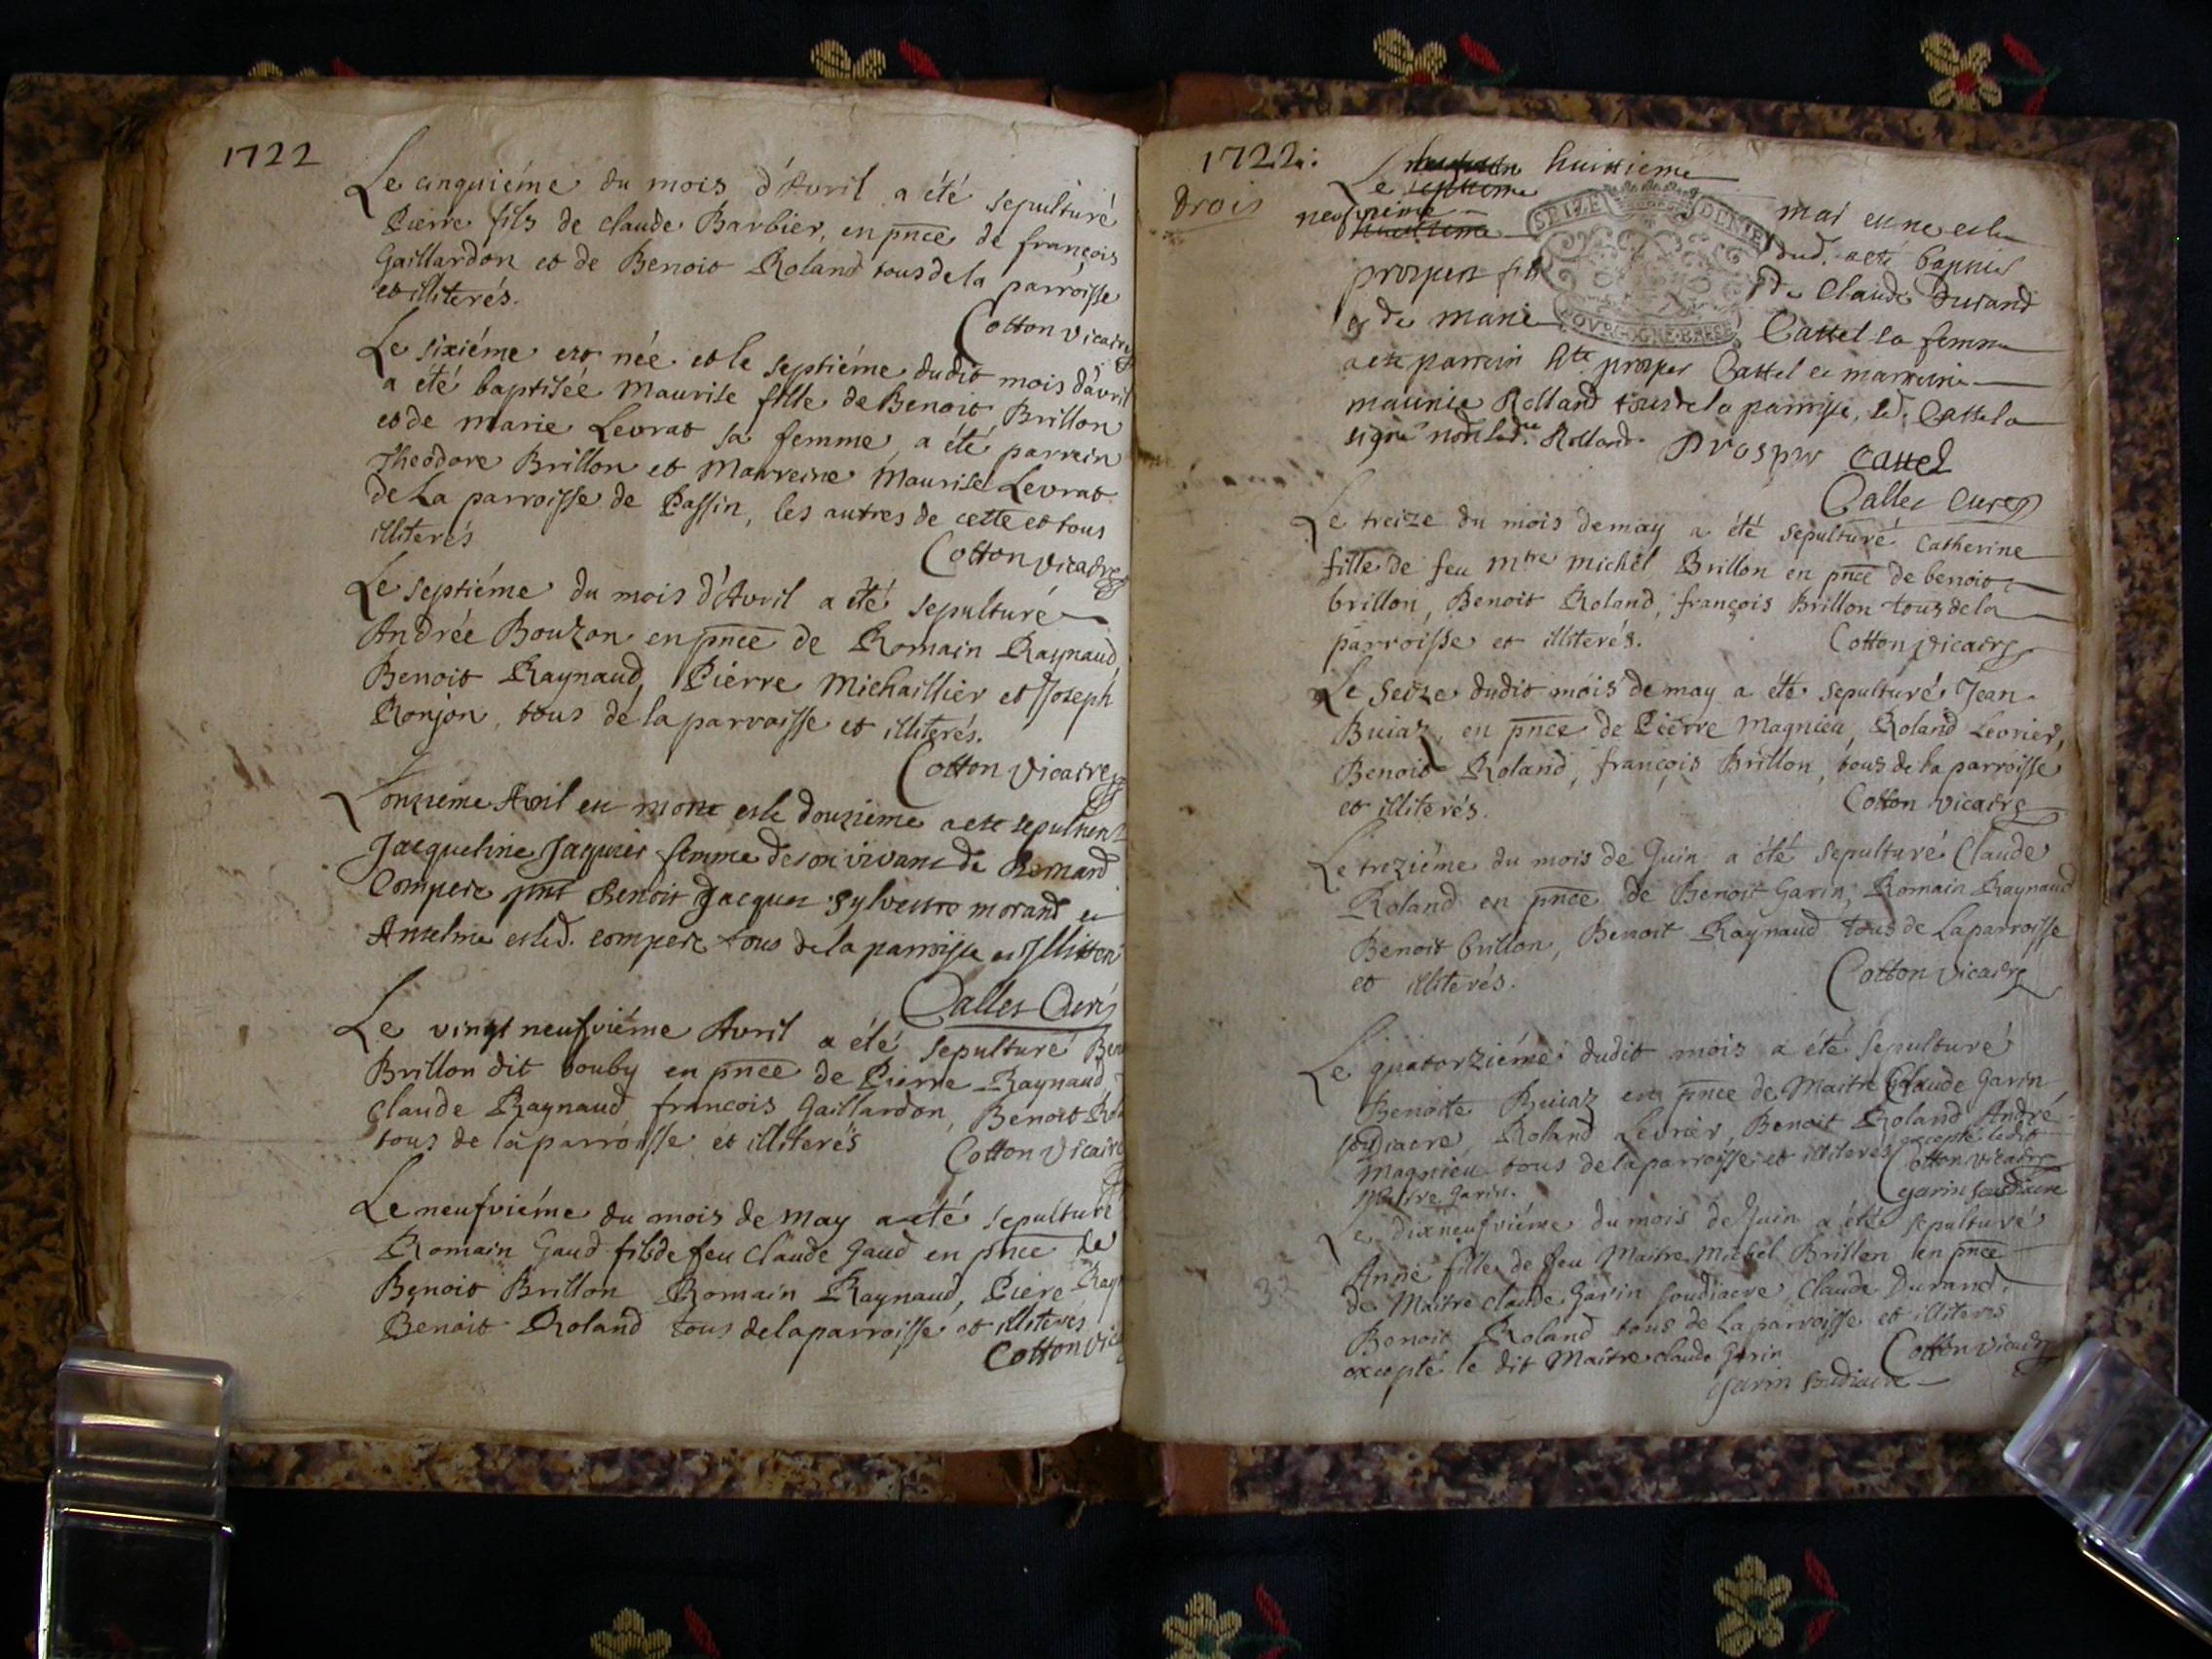 1722
Le cinquiéme du mois d'Avril a été sepulturé
Pierre fils de claude Barbier, en pnce de françois
Gaillardon et de Benoit Roland tous de la parroisse
et illiterés.
Cotton vicaire
Le sixiéme est née et le septiéme dudit mois d'avril
a été baptisée Maurise fille de Benoit Brillon
et de marie Levrat sa femme, a été parrein
Theodore Brillon et Marreine Maurise Levrat
de La parroisse de Passin, les autres de cette et tous
illiterés
Cotton vicaire
Le septiéme du mois d'Avril a été sepulturé
Andrée Bouzon en pnce de Romain Raynaud,
Benoit Raynaud, Pierre Michaillier et Joseph
Ronjon, tous de la parroisse et illiterés.
Cotton vicaire
L'onzieme Avril est mort et le douzieme a este sepulture
Jacqueline Jaquier femme de son vivant de Bernard
Compere pnt Benoit Jacques Sylvestre morand et
Anselme et led. compere tous de la parroisse et Illitere
Calles Curé
Le vingt neufviéme Avril a été sepulturé Ben
Brillon dit bouby en pnce de Pierre Raynaud,
Claude Raynaud francois Gaillardon, Benoit Rol
tous de la parroisse et illiterés
Cotton vicaire
Le neufviéme du mois de May a été sepulturé
Romain Gaud fils de feu Claude Gaud en pnce de
Benoit Brillon Romain Raynaud, Piere Rayn
Benoit Roland tous de la parroisse et illiterés
Cotton vic
1722:
Drois
Le septieme huittieme
mai est ne et le
neufvieme huittieme dud. a eté baptisé
SEIZE DENIE
BOURGOGNE-BRESSE
prospert fils de Claude Durand
et de marie Cattel sa femme
a este parrein hte prosper Cattel et marreine
maurise Rolland tous de la parroisse, led. Cattel a
signé non lad.te Rolland. Prosper Cattel
Calles curé
Le treize du mois de may a été sepulturé Catherine
fille de feu mtre michel Brillon en pnce de benoit
brillon, Benoit Roland, françois Brillon tous de la
parroisse et illiterés. Cotton vicaire
Le Seize dudit mois de may a été sepulturé Jean
Buiaz, en pnce de Pierre Magnieu, Roland Levrier,
Benoit Roland, françois Brillon, tous de la parroisse
et illiterés. Cotton vicaire
Le treziéme du mois de Juin a été sepulturé Claude
Roland en pnce de Benoit Garin, Romain Raynaud
Benoit brillon, Benoit Raynaud tous de La parroisse
et illiterés. Cotton vicaire
Le quatorziéme dudit mois a été sepulturé
Benoite Buiaz en pnce de Maitre Claude Garin
soudiacre, Roland Levrier, Benoit Roland André
Magnieu tous de la parroisse et illiterés excepté ledit
Maitre Garin. Cotton vicaire
garin soudiacre
Le dixneufviéme du mois de Juin a été sepulturé
Anne fille de feu Maitre Michel Brillon en pnce
de Maitre claude Garin soudiacre Claude Durand,
Benoit Roland tous de La parroisse et illiterés
excepté le dit Maitre claude Garin Cotton vicaire
garin soudiacre